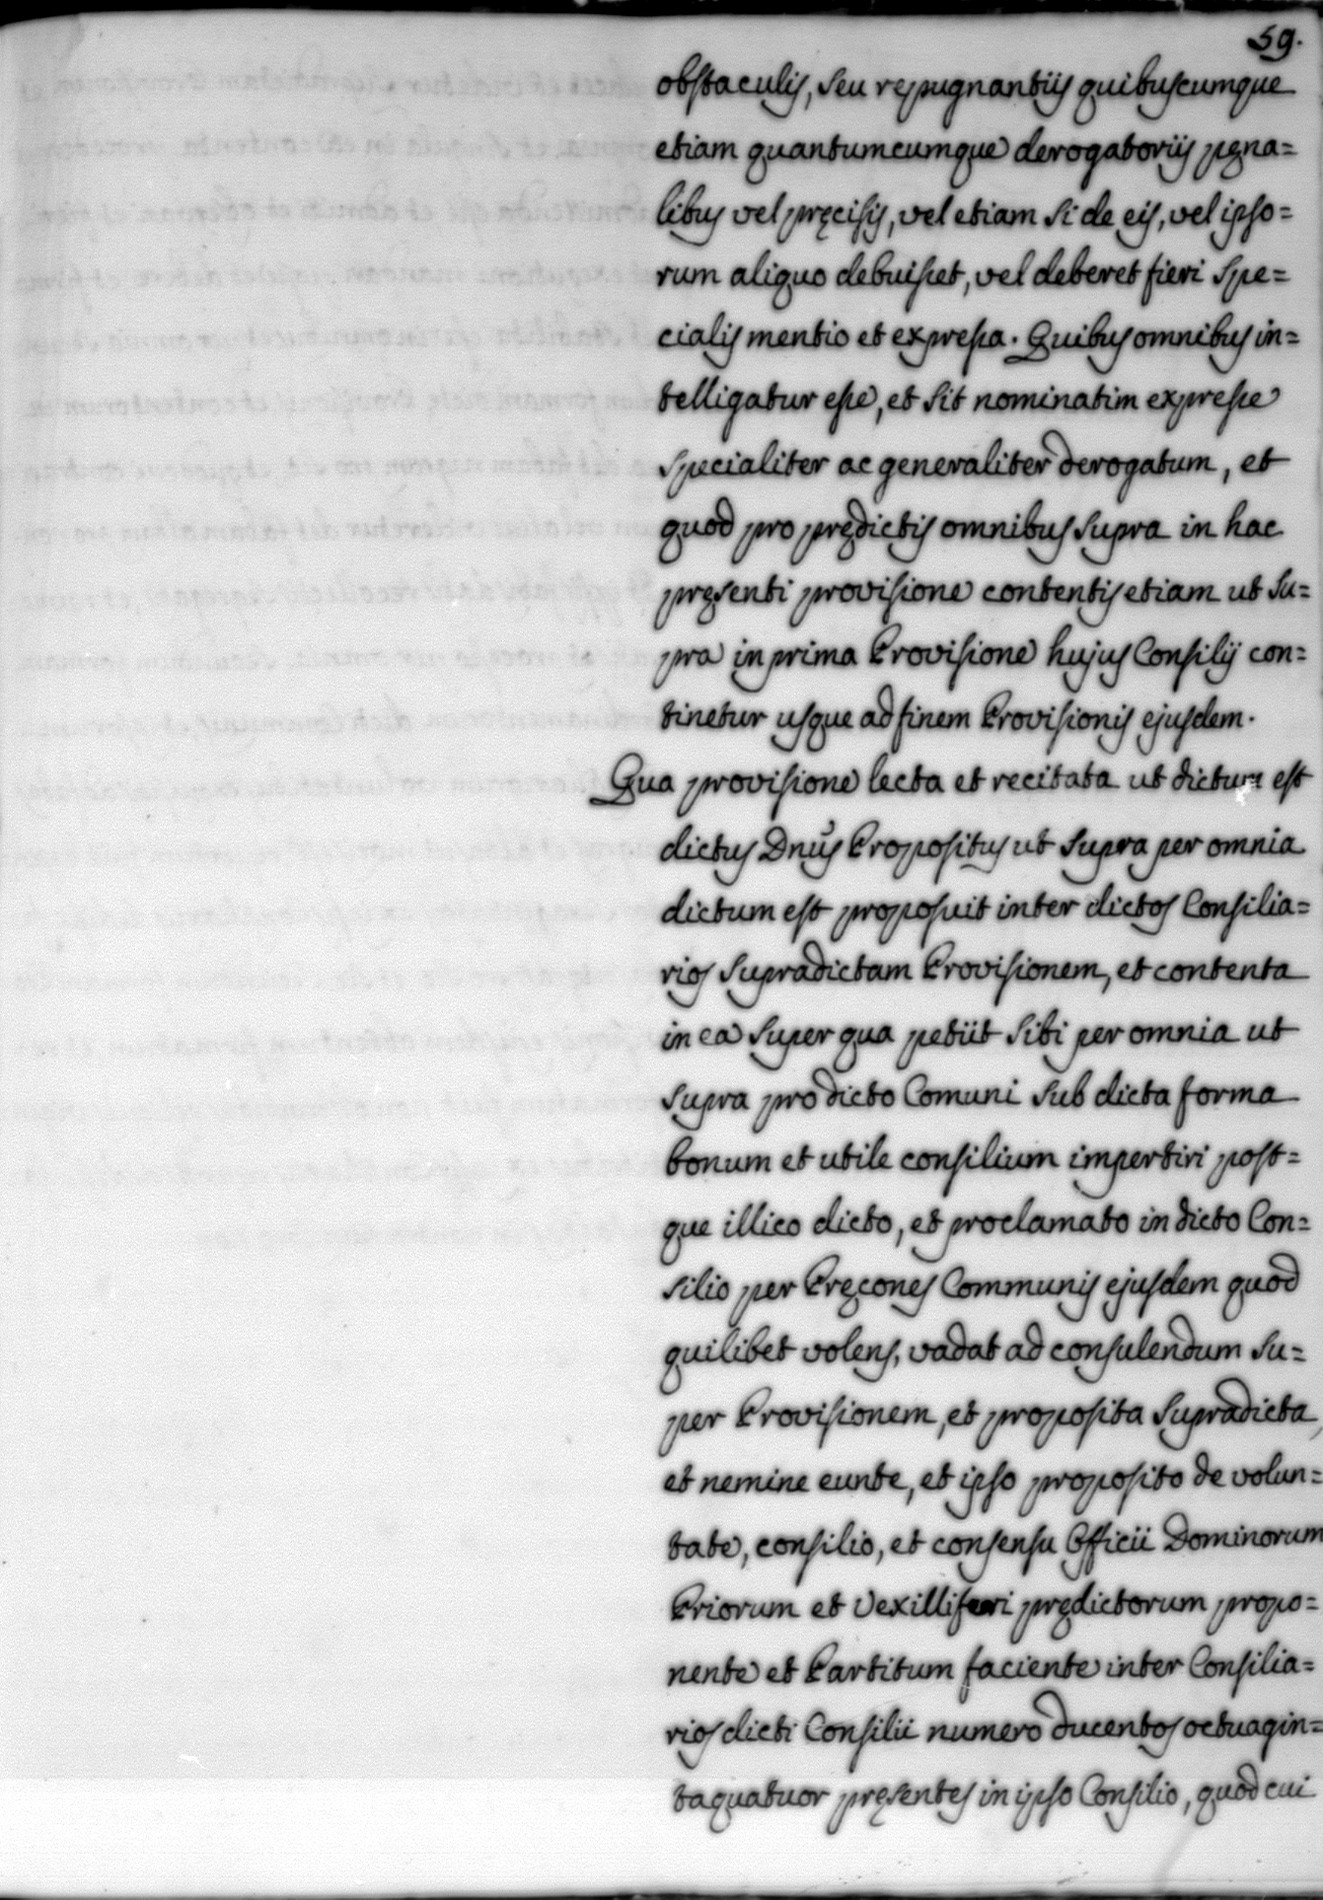 59.
obstaculis, seu repugnantiis quibuscumque
etiam quantumcumque derogatoriis pęna=
libus vel pręcisis, vel etiam si de eis, vel ipso=
rum aliquo debuisset, vel deberet fieri spe=
cialis mentio et expressa. Quibus omnibus in=
telligatur esse, et sit nominatim expresse
specialiter ac generaliter derogatum, et
quod pro prędictis omnibus supra in hac
pręsenti provisione contentis etiam ut su=
pra in prima Provisione hujus Consilij con=
tinetur usque ad finem Provisionis ejusdem.
Qua provisione lecta et recitata ut dictum est
dictus Dnus Propositus ut supra per omnia
dictum est proposuit inter dictos Consilia=
rios supradictam Provisionem, et contenta
in ea super qua petiit sibi per omnia ut
supra pro dicto Comuni sub dicta forma
bonum et utile consilium impertiri post=
que illico dicto, et proclamato in dicto Con=
silio per Pręcones Communis ejusdem quod
quilibet volens, vadat ad consulendum su=
per Provisionem, et proposita supradicta,
et nemine eunte, et ipso proposito de volun=
tate, consilio, et consensu Officii Dominorum
Priorum et Vexilliferi prędictorum propo=
nente et Partitum faciente inter Consilia=
rios dicti Consilii numero ducentos octuagin=
taquatuor pręsentes in ipso Consilio, quod cui